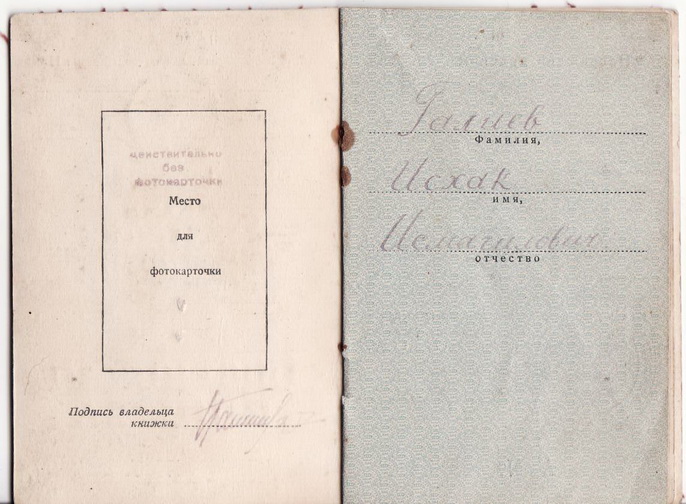 действительно
без
фотокарточки
Место
для
фотокарточки
Подпись владельца
книжки
Галиев
Фамилия,
Исхак
имя,
Исмагилович
отчество